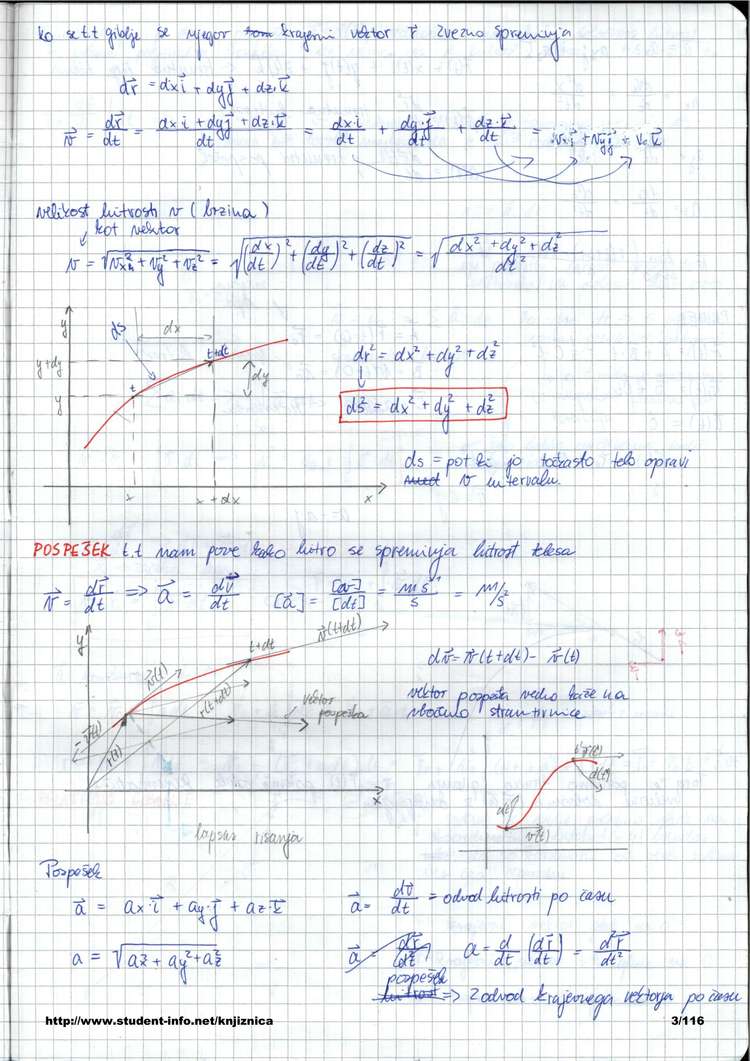 ko se t.t giblje se njegov krajevni vektor r⃗ zvezno spreminja
dr⃗ = dx i⃗ + dy j⃗ + dz·k⃗
v⃗ = dr⃗/dt = (dx·i + dy j⃗ + dz·k⃗)/dt = dx·i/dt + dy·j⃗/dt + dz·k⃗/dt = vx·i⃗ + vy j⃗ + vz k⃗
velikost hitrosti v (brzina)
kot vektor
v = √(vx² + vy² + vz²) = √((dx/dt)² + (dy/dt)² + (dz/dt)²) = √((dx² + dy² + dz²)/dt²)
y
ds
dx
t+dt
y+dy
dy
t
y
x
x+dx
x
dr² = dx² + dy² + dz²
ds² = dx² + dy² + dz²
ds = pot ki jo točkasto telo opravi
v intervalu.
POSPEŠEK t.t nam pove kako hitro se spreminja hitrost telesa
v⃗ = dr⃗/dt => a⃗ = dv⃗/dt [a⃗] = [v]/[dt] = m s⁻¹/s = m/s²
y
t+dt
v⃗(t+dt)
v⃗(t)
r(t+dt)
-v⃗(t)
r(t)
vektor
pospeška
x
lapsus risanja
dv⃗ = v⃗(t+dt) - v⃗(t)
vektor pospeška vedno kaže na
vbočeno stran tirnice
v(t)
Pospešek
a⃗ = ax·i⃗ + ay·j⃗ + az·k⃗
a = √(ax² + ay² + az²)
a⃗ = dv⃗/dt = odvod hitrosti po času
a⃗ = dr⃗/dt² a = d/dt (dr⃗/dt) = d²r⃗/dt²
pospešek
hitrost => 2 odvod krajevnega vektorja po času
http://www.student-info.net/knjiznica
3/116